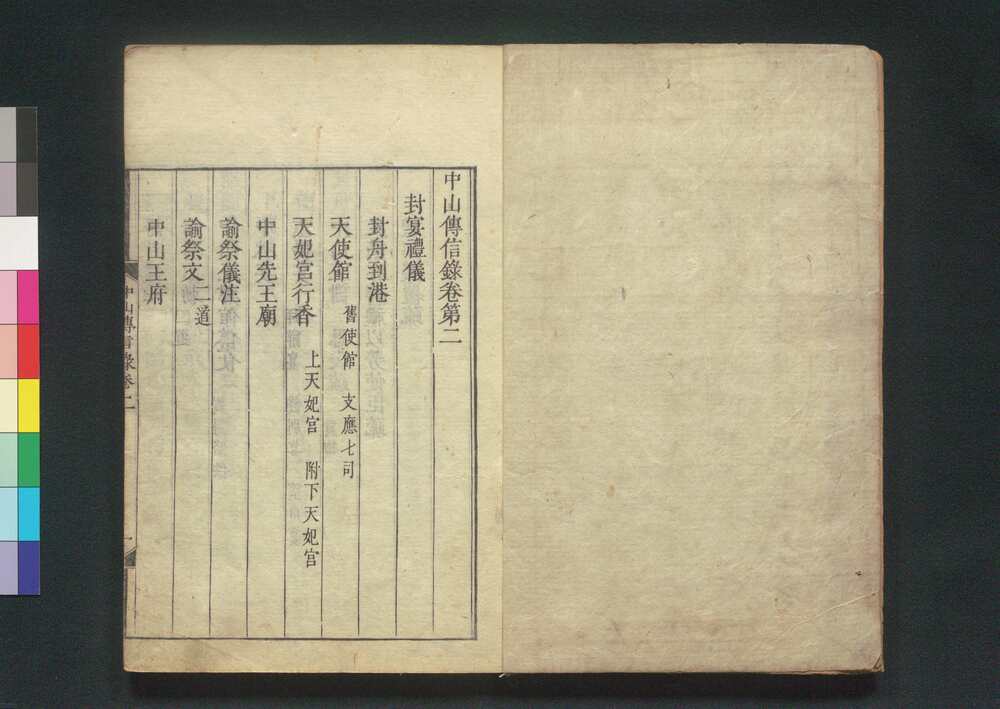 中山傳信錄卷第二
封宴禮儀
封舟到港
天使館 舊使館 支應七司
天妃宮行香 上天妃宮 附下天妃宮
中山先王廟
諭祭儀注
諭祭文二道
中山王府
中山傳信錄卷二
一